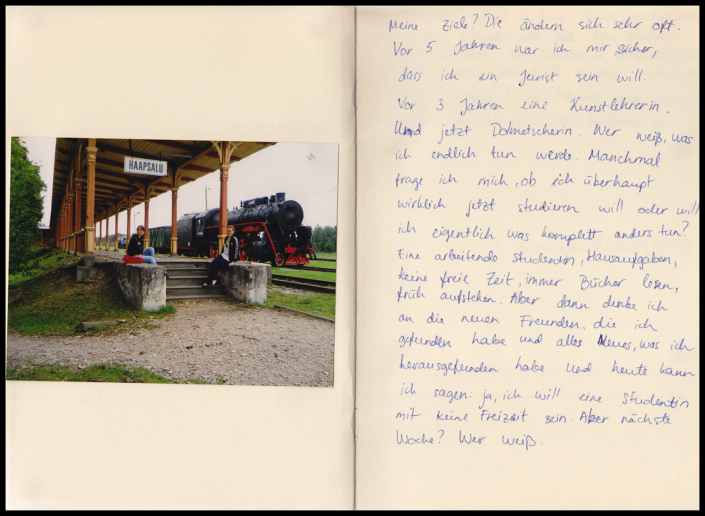 HAAPSALU
Meine Ziele? Die ändern sich sehr oft.
Vor 5 Jahren war ich mir sicher,
dass ich ein Jurist sein will.
Vor 3 Jahren eine Kunstlehrerin.
Und jetzt Dolmetscherin. Wer weiß, was
ich endlich tun werde. Manchmal
frage ich mich, ob ich überhaupt
wirklich jetzt studieren will oder will
ich eigentlich was komplett anders tun?
Eine arbeitende Studentin, Hausaufgaben,
keine freie Zeit, immer Bücher lesen,
früh aufstehen. Aber dann denke ich
an die neuen Freunden, die ich
gefunden habe und alles Neues, was ich
herausgefunden habe und heute kann
ich sagen: ja, ich will eine Studentin
mit keine Freizeit sein. Aber nächste
Woche? Wer weiß.